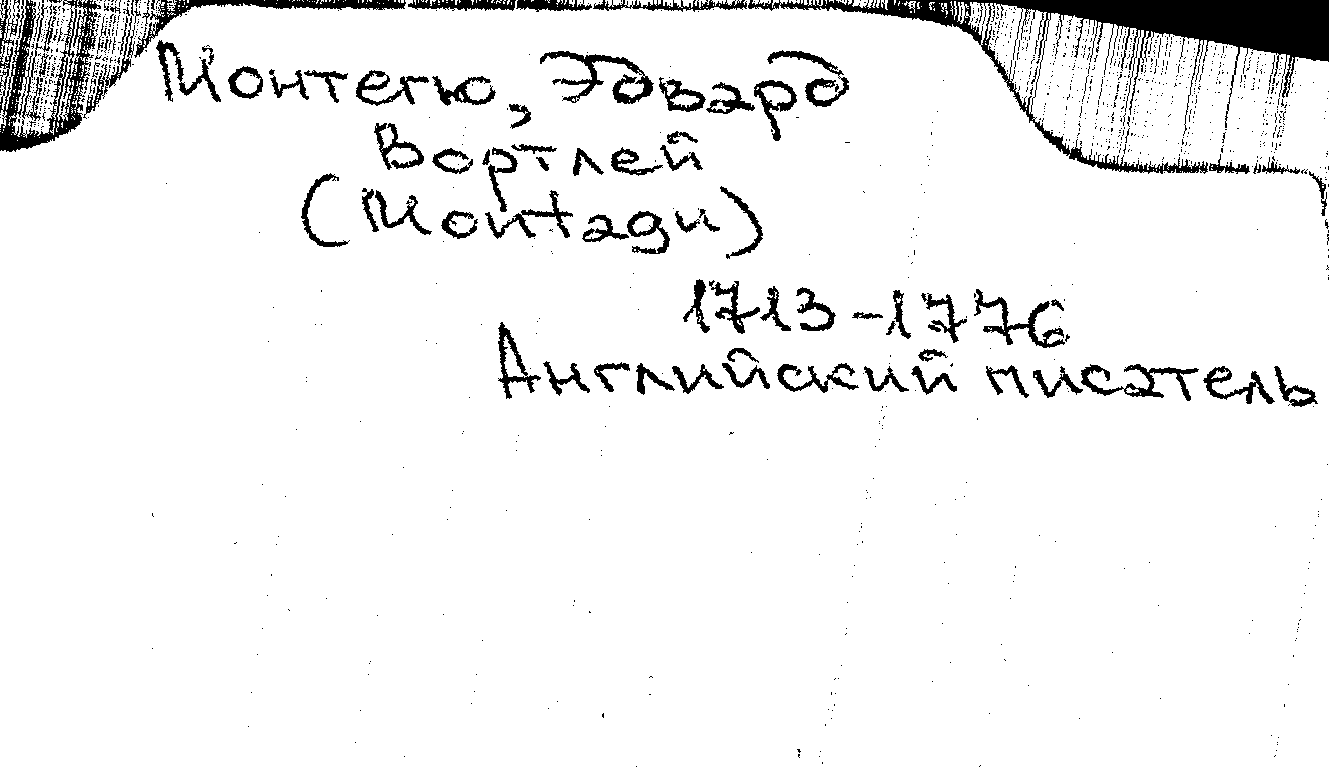 Монтегю, Эдвард
Вортлей
(Montagu)
1713-1776
Английский писатель